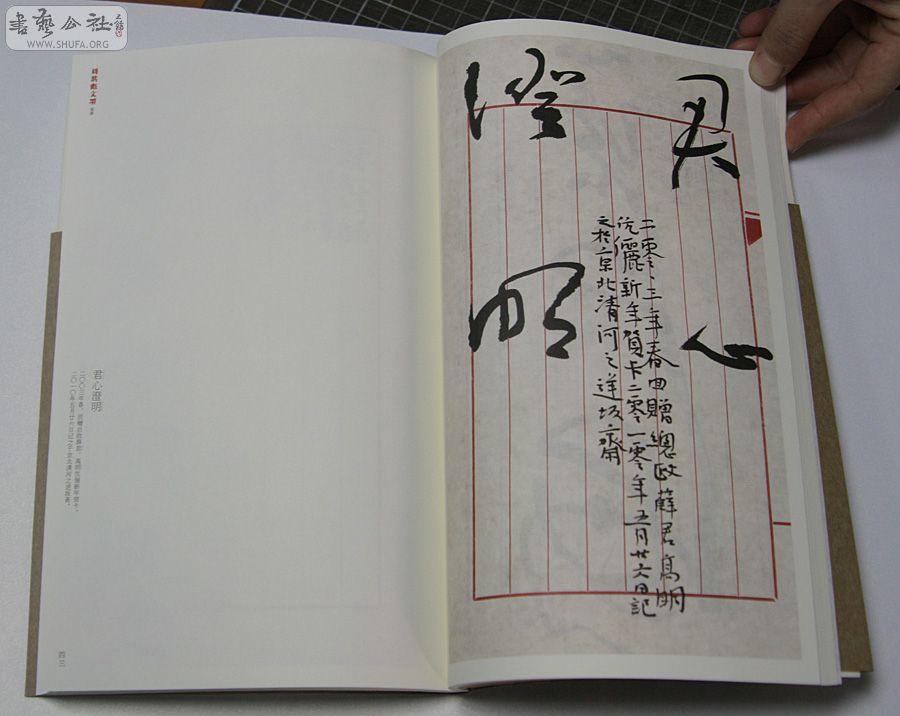 書藝公社
WWW.SHUFA.ORG
君心
澄明
二零〇三年春回贈總政薛君高明
伉儷新年賀卡二零一零年五月廿六日記
之於京北清河之蓮坂齋
君心澄明
四三